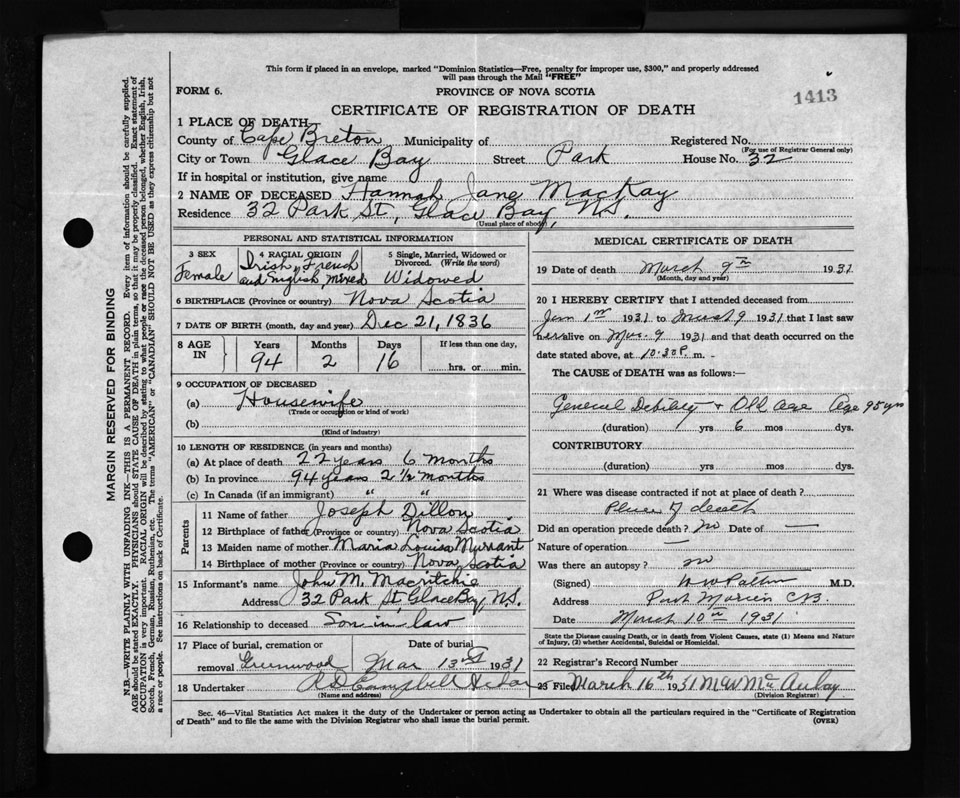 This form if placed in an envelope, marked "Dominion Statistics—Free, penalty for improper use, $300," and properly addressed
will pass through the Mail "FREE"
FORM 6.
PROVINCE OF NOVA SCOTIA
1413
CERTIFICATE OF REGISTRATION OF DEATH
1 PLACE OF DEATH
County of Cape Breton Municipality of Registered No.
(For use of Registrar General only)
City or Town Glace Bay Street Park House No. 32
If in hospital or institution, give name
2 NAME OF DECEASED Hannah Jane MacKay
Residence 32 Park St, Glace Bay, N.S.
(Usual place of abode)
PERSONAL AND STATISTICAL INFORMATION
3 SEX
Female
4 RACIAL ORIGIN
Irish, French
and English mixed
5 Single, Married, Widowed or
Divorced. (Write the word)
Widowed
6 BIRTHPLACE (Province or country) Nova Scotia
7 DATE OF BIRTH (month, day and year) Dec 21, 1836
8 AGE IN
Years Months Days If less than one day,
94 2 16 hrs. or min.
9 OCCUPATION OF DECEASED
(a) Housewife
(Trade or occupation or kind of work)
(b)
(Kind of industry)
10 LENGTH OF RESIDENCE (in years and months)
(a) At place of death 22 years 6 months
(b) In province 94 years 2 1/2 months
(c) In Canada (if an immigrant) " "
Parents
11 Name of father Joseph Dillon
12 Birthplace of father (Province or country) Nova Scotia
13 Maiden name of mother Maria Louisa Murrant
14 Birthplace of mother (Province or country) Nova Scotia
15 Informant's name John M. Macritchie
Address 32 Park St, Glace Bay, N.S.
16 Relationship to deceased Son in law
17 Place of burial, cremation or Date of burial
removal Greenwood Mar 13th 1931
18 Undertaker A D Campbell
(Name and address)
MEDICAL CERTIFICATE OF DEATH
19 Date of death March 9th 1931
(Month, day and year)
20 I HEREBY CERTIFY that I attended deceased from
Jan 1st 1931 to March 9 1931 that I last saw
her alive on Mar. 9 1931 and that death occurred on the
date stated above, at 10.30 P. m.
The CAUSE of DEATH was as follows:
General Debility + Old Age Age 95 yrs
(duration) yrs 6 mos dys.
CONTRIBUTORY
(duration) yrs mos dys.
21 Where was disease contracted if not at place of death?
Place of death
Did an operation precede death? no Date of —
Nature of operation —
Was there an autopsy? no
(Signed) M.D.
Address Port Morien C.B.
Date March 10th 1931
State the Disease causing Death, or in death from Violent Causes, state (1) Means and Nature
of Injury, (2) whether Accidental, Suicidal or Homicidal.
22 Registrar's Record Number
23 Filed March 16th 1931 McAulay
(Division Registrar)
Sec. 46—Vital Statistics Act makes it the duty of the Undertaker or person acting as Undertaker to obtain all the particulars required in the "Certificate of Registration
of Death" and to file the same with the Division Registrar who shall issue the burial permit.
(OVER)
MARGIN RESERVED FOR BINDING
N.B.—WRITE PLAINLY WITH UNFADING INK—THIS IS A PERMANENT RECORD. Every item of information should be carefully supplied.
AGE should be stated EXACTLY. PHYSICIANS should STATE CAUSE OF DEATH in plain terms, so that it may be properly classified. Exact statement of
OCCUPATION is very important. RACIAL ORIGIN will be described by stating to what people or race the deceased person belonged, whether English, Irish,
Scotch, French, German, Russian, Ruthenian, etc. The terms "AMERICAN" or "CANADIAN" SHOULD NOT BE USED as they express citizenship but not
a race or people. See instructions on back of Certificate.